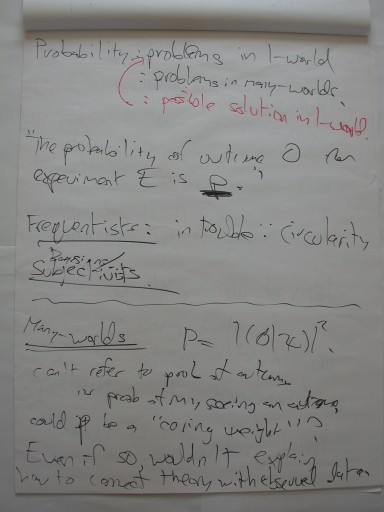 Probability: problems in 1-world
: problems in Many-worlds.
: possible solution in 1-world.
"The probability of outcome O for
experiment E is p."
Frequentists: in trouble ∵ circularity
Bayesians/
Subjectivists
Many-worlds P= |⟨O|ψ⟩|².
can't refer to prob of outcome
or prob of my seeing an outcome
could p be a "caring weight"?
Even if so, wouldn't explain
how to connect theory with observed data